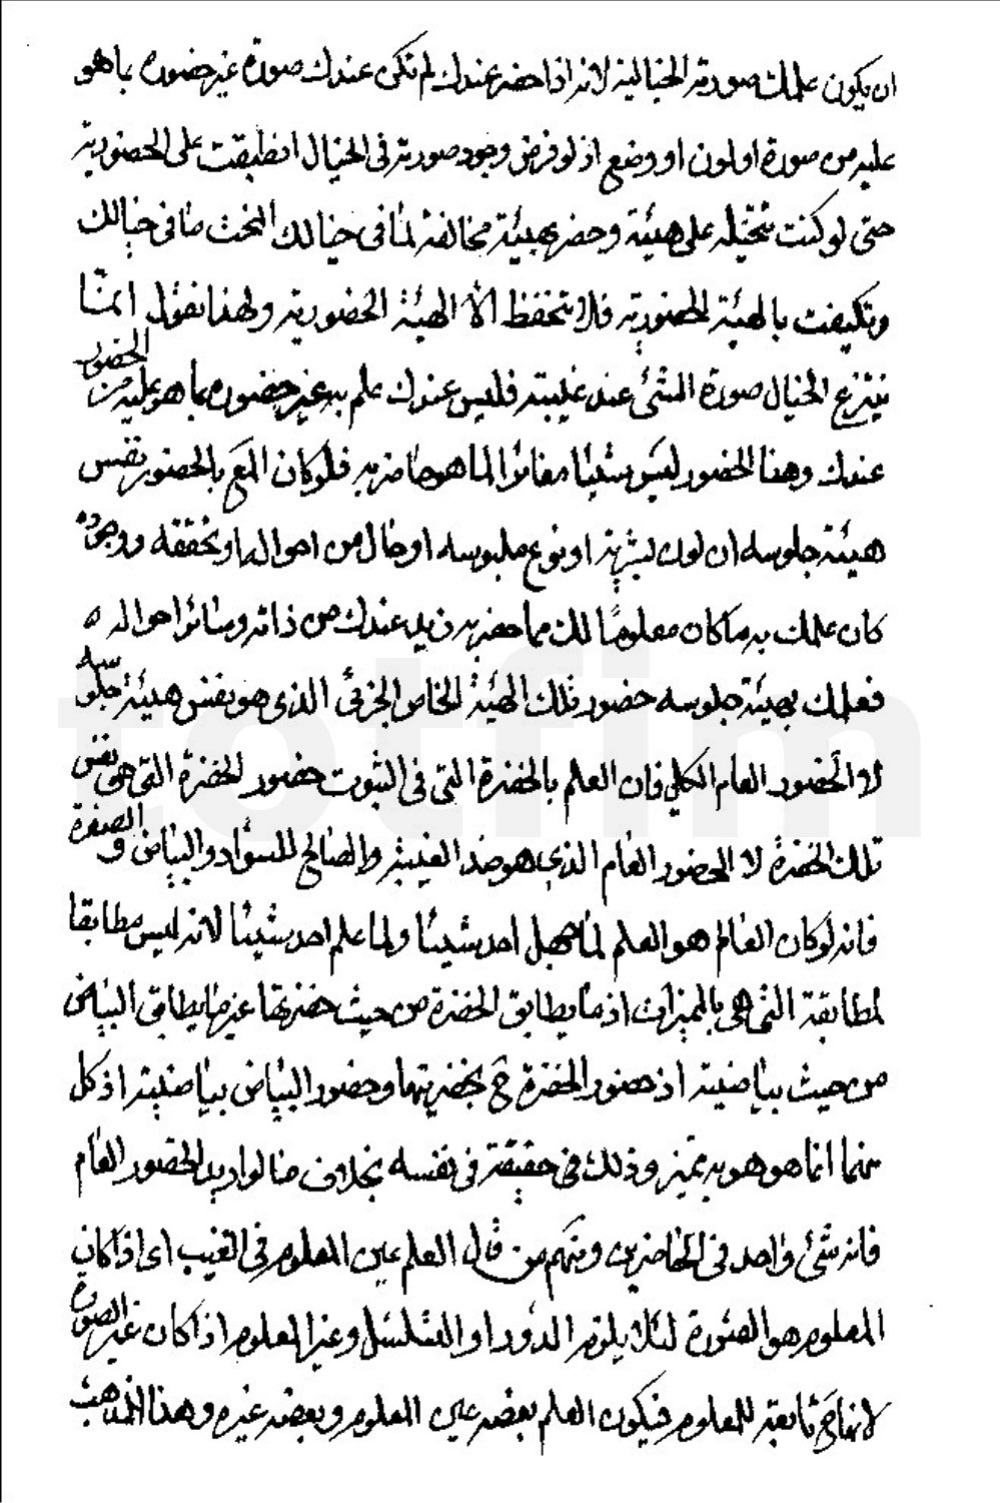 ان يكون علمك صورته الخيالية لانه اذا حضر عندك لم تكن عندك صورة غير حضوره بما هو
عليه من صورة او لون او وضع اذ لو فرض وجود صورته فى الخيال انطبقت على الحضورية
حتى لو كنت تتخيله على هيئة وحضر بهيئة مخالفة لما فى خيالك انمحت ما فى خيالك
وتكيفت بالهيئة الحضورية فلا تنحفظ الا الهيئة الحضورية ولهذا نقول انما
ينتزع الخيال صورة الشئ عند غيبته فليس عندك علم به غير حضوره بما هو عليه من الحضور
عندك وهذا الحضور ليس شيئا مغائرا لما هو حاضر به فلو كان المع بالحضور نفس
هيئة جلوسه ان لون بشرته او نوع ملبوسه او حال من احواله او تحققه ووجوده
كان علمك به ما كان معلوما لك مما حضر به زيد عندك من ذاته وسائر احواله ه
فعلمك بهيئة جلوسه حضور تلك الهيئة الخاص الجزئى الذى هو نفس هيئة جلوسه
لا الحضور العام الكلى فان العلم بالخضرة التى فى الثبوت حضور الخضرة التى هى نفس
تلك الخضرة لا الحضور العام الذى هو ضد الغيبة والصالح للسواد والبياض و الصفرة
فانه لو كان العام هو العلم لما جهل احد شيئا ولما علم احد شيئا لانه ليس مطابقا
لمطابقة التى هى بالميزات اذ ما يطابق الخضرة من حيث خضرتها غير ما يطابق البياض
من حيث بياضيته اذ حضور الخضرة ح بخضريتها وحضور البياض بياضيته اذ كل
منهما انما هو هو به تميز وذلك فى حقيقته فى نفسه بخلاف ما لو اريد الحضور العام
فانه شئ واحد فى الحاضرين ومنهم من قال العلم عين المعلوم فى الغيب اى اذا كان
المعلوم هو الصورة لئلا يلزم الدور او التسلسل وغير المعلوم اذا كان غير الصورة
لانها ح تابعة للمعلوم فيكون العلم بعضه عين المعلوم وبعضه غيره وهذا المذهب